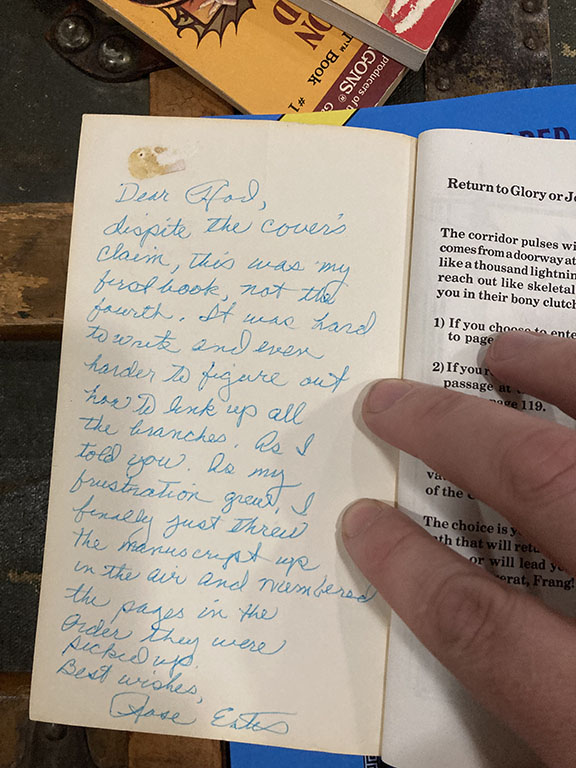 ON
D
r™ Book #1
producers of
GONS®
G
RED
Dear Rod,
dispite the cover's
claim, this was my
first book, not the
fourth. It was hard
to write and even
harder to figure out
how to link up all
the branches. As I
told you. As my
frustration grew, I
finally just threw
the manuscript up
in the air and numbered
the pages in the
order they were
picked up.
Best wishes,
Rose Estes
Return to Glory or Je
The corridor pulses wi
comes from a doorway at
like a thousand lightnin
reach out like skeletal
you in their bony clutch
1) If you choose to ente
to page
2) If you r
passage at
page 119.
va
of the
The choice is y
th that will retu
or will lead yo
erat, Frang!